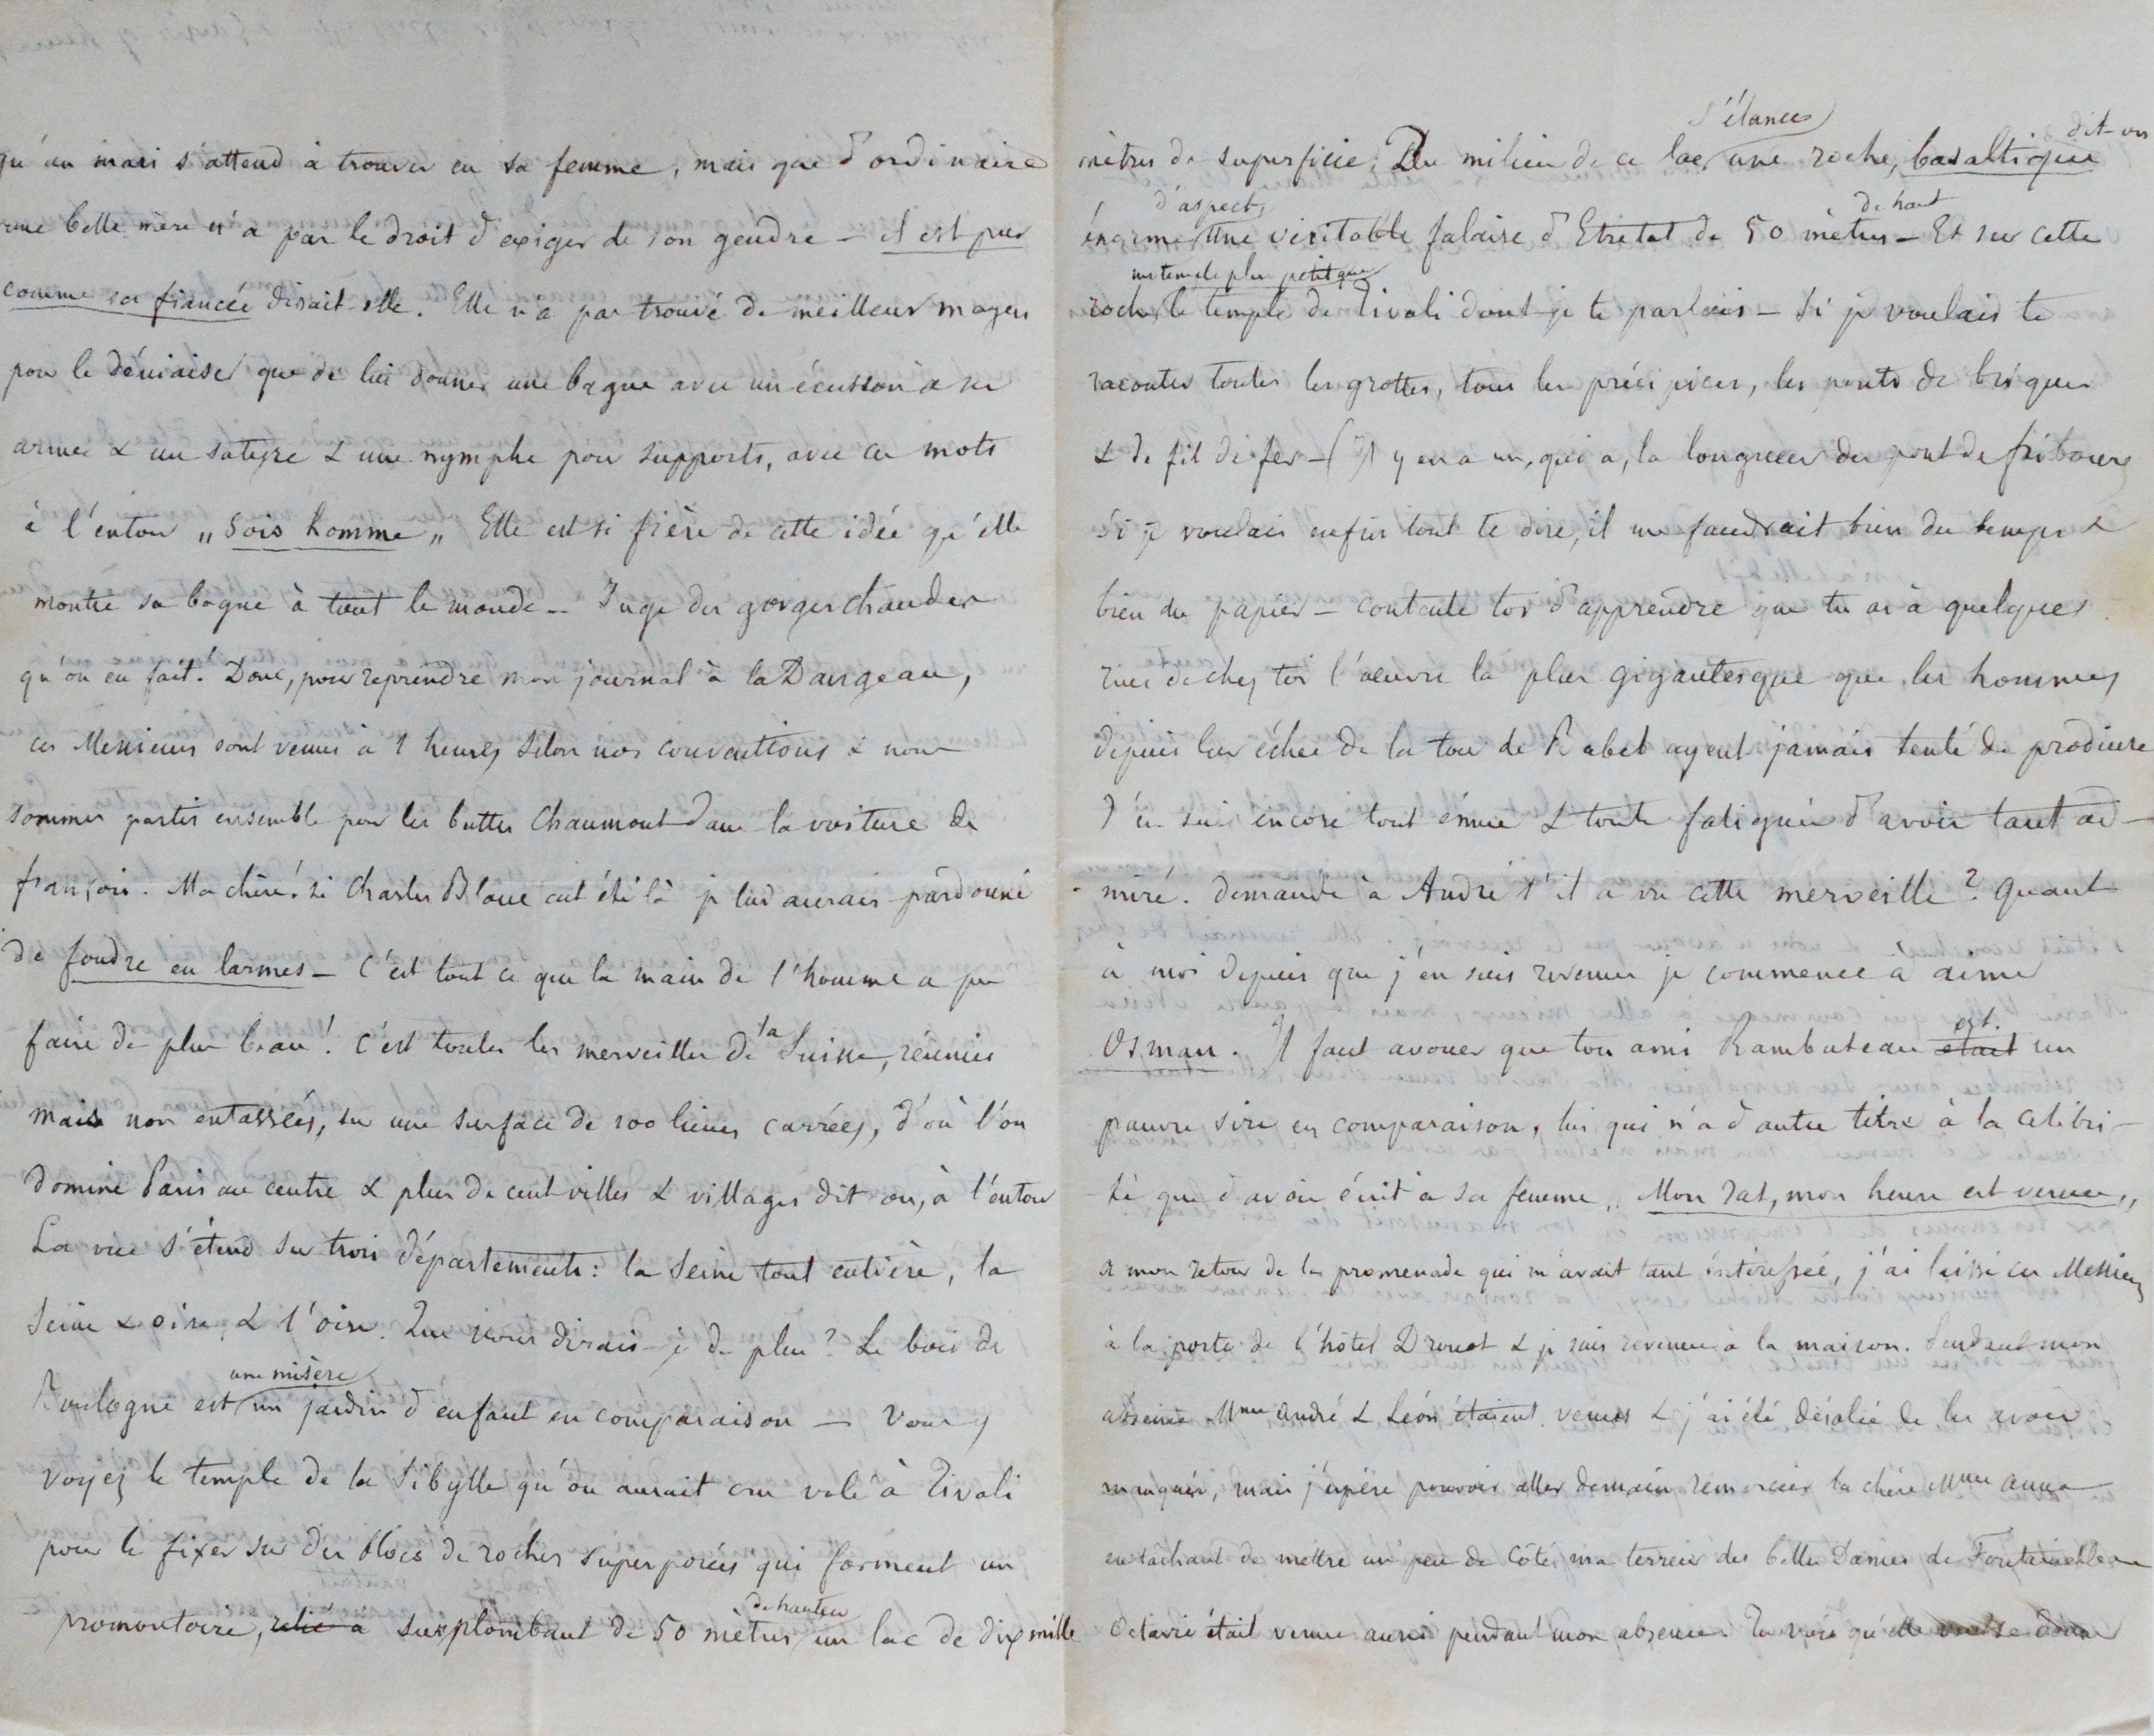 qu'un mari s'attend à trouver en sa femme, mais que d'ordinaire
une belle mère n'a pas le droit d'exiger de son gendre – il est pur
comme sa fiancée disait-elle. Elle n'a pas trouvé de meilleur moyen
pour le déniaiser que de lui donner une bague avec un écusson à ses
armes & un satyre & une nymphe pour supports, avec ces mots
à l'entour „ Sois homme „ Elle est si fière de cette idée qu'elle
montre sa bague à tout le monde – Juge des gorges chaudes
qu'on en fait! Donc, pour reprendre mon journal à la Dangeau,
ces Messieurs sont venus à 1 heures selon nos conventions & nous
sommes partis ensemble pour les buttes Chaumont dans la voiture de
françois. Ma chère! si Charles Blanc eut été là je lui aurais pardonné
de fondre en larmes – C'est tout ce que la main de l'homme a pu
faire de plus beau! C'est toutes les merveilles de la Suisse, réunies
mais non entassées, sur une surface de 100 lieues carrées, d'où l'on
domine Paris au centre & plus de cent villes & villages dit on, à l'entour
La vue s'étend sur trois départements: la Seine tout entière, la
Seine & oise, & l'oise. Que vous dirais-je de plus? Le bois de
Boulogne est une misère un jardin d'enfant en comparaison – Vous y
voyez le temple de la Sibylle qu'on aurait cru volé à Tivoli
pour le fixer sur des blocs de rochers superposées qui forment un
promontoire, relié à surplombant de 50 mètres de hauteur un lac de dix mille
mètres de superficie. Du milieu de ce lac s'élance une roche, basaltique dit-on
énorme d'aspect, Une véritable falaise d'Etretat de 50 mètres de haut – Et sur cette
roche un temple plus petit que le temple de Tivoli dont je te parlais – Si je voulais te
raconter toutes les grottes, tous les précipices, les ponts de briques
& de fil de fer – (Il y en a un, qui a, la longueur du pont de fribourg
si je voulais enfin tout te dire, il me faudrait bien du temps &
bien du papier – contente toi d'apprendre que tu as à quelques
rues de chez toi l'œuvre la plus gigantesque que les hommes
depuis leur échec de la tour de Babel ayent jamais tenté de produire
J'en suis encore tout émue & toute fatiguée d'avoir tant ad-
miré. demande à André s'il a vu cette merveille? Quant
à moi depuis que j'en suis revenue je commence à aimer
Osman. Il faut avouer que ton ami Rambuteau était est. un
pauvre sire en comparaison, lui qui n'a d'autre titre à la célébri-
té que d'avoir écrit à sa femme „ Mon rat, mon heure est venue „
à mon retour de la promenade qui m'avait tant intéressée, j'ai laissé ces Messieurs
à la porte de l'hôtel Drouot & je suis revenue à la maison. Pendant mon
absence Mme André & Léon étaient venus & j'ai été désolée de les avoir
manqués, mais j'espère pouvoir aller demain remercier la chère Mme Anna
en tâchant de mettre un peu de côté, ma terreur des belles Dames de Fontainebleau
Octavie était venue aussi pendant mon absence. Tu vois qu'elle